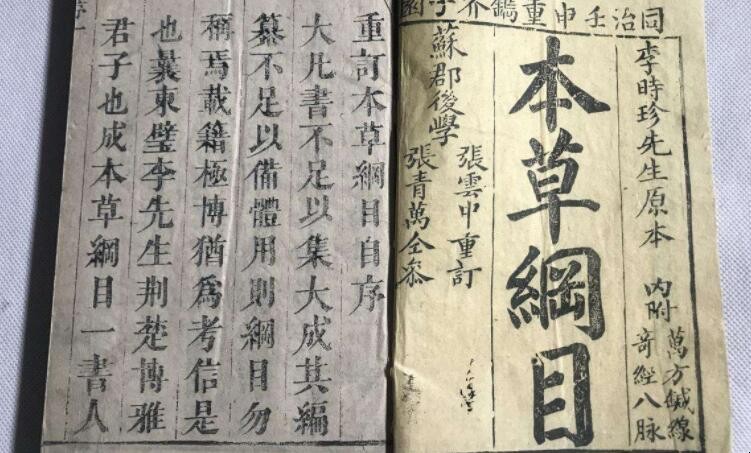 同治壬申重鐫 芥子
李時珍先生原本
內附
萬方鍼線
奇經八脉
本草綱目
蘇郡後學
張雲中重訂
張青萬仝參
重訂本草綱目自序
大凡書不足以集大成其編
纂不足以備體用則綱目勿
稱焉載籍極博猶爲考信是
也曩東璧李先生荆楚博雅
君子也成本草綱目一書人